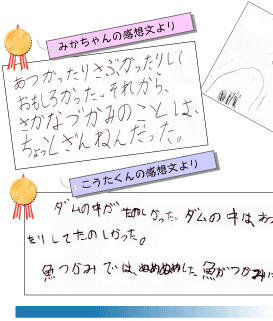 みかちゃんの感想文より
あつかったりさぶかったりして
おもしろかった。それから、
さかなつかみのことは、
ちょとざんねんだった。
こうたくんの感想文より
ダムの中がたのしかった。ダムの中は、あつ
たりしてたのしかった。
魚つかみでは、ぬめぬめした魚がつかみに